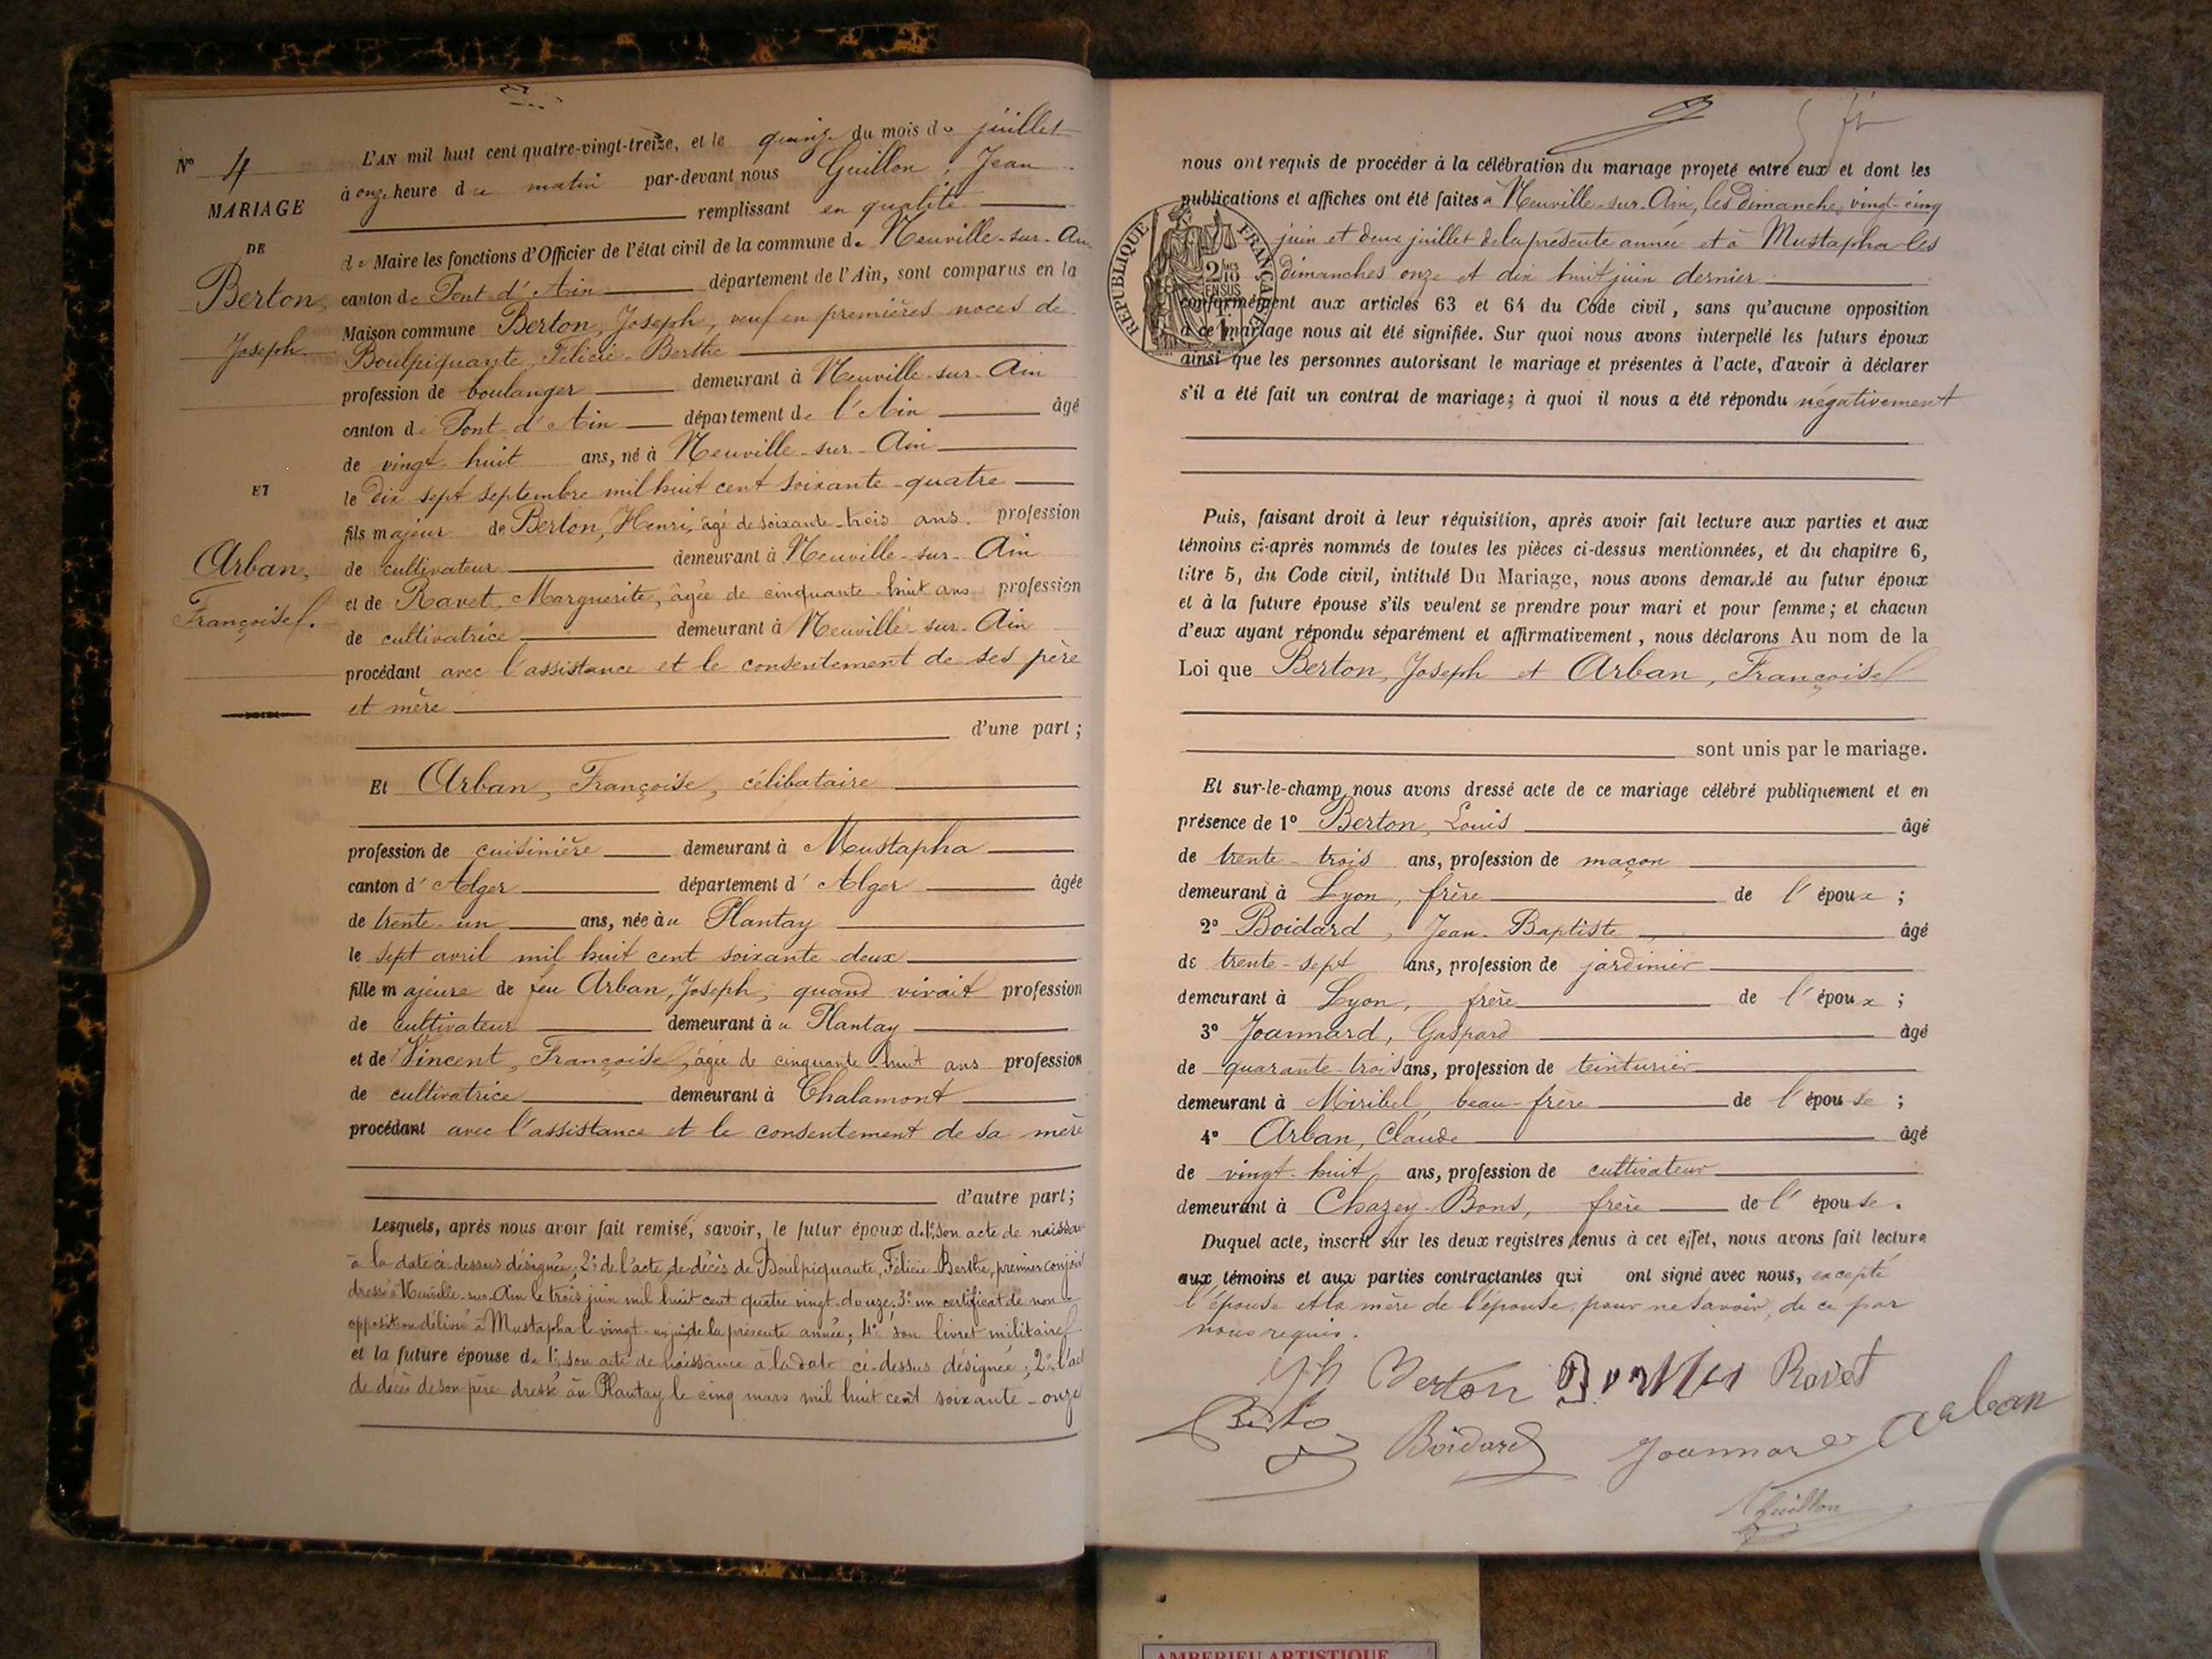 N° 4
MARIAGE
DE
Berton,
Joseph
ET
Arban,
Françoise.
L'AN mil huit cent quatre-vingt-treize, et le quinze du mois de juillet
à onze heure du matin par-devant nous Guillon, Jean
remplissant en qualité
de Maire les fonctions d'Officier de l'état civil de la commune de Neuville-sur-Ain
canton de Pont d'Ain département de l'Ain, sont comparus en la
Maison commune Berton, Joseph, veuf en premières noces de
Boulpiquante, Félicie-Berthe
profession de boulanger demeurant à Neuville-sur-Ain
canton de Pont-d'Ain département de l'Ain âgé
de vingt-huit ans, né à Neuville-sur-Ain
le dix sept septembre mil huit cent soixante-quatre
fils majeur de Berton, Henri, âgé de soixante-trois ans profession
de cultivateur demeurant à Neuville-sur-Ain
et de Ravet, Marguerite, âgée de cinquante-huit ans profession
de cultivatrice demeurant à Neuville-sur-Ain
procédant avec l'assistance et le consentement de ses père
et mère
d'une part;
Et Arban, Françoise, célibataire
profession de cuisinière demeurant à Mustapha
canton d'Alger département d'Alger âgée
de trente-un ans, née àu Plantay
le sept avril mil huit cent soixante-deux
fille majeure de feu Arban, Joseph, quand vivait profession
de cultivateur demeurant à u Plantay
et de Vincent, Françoise, âgée de cinquante-huit ans profession
de cultivatrice demeurant à Chalamont
procédant avec l'assistance et le consentement de sa mère
d'autre part;
Lesquels, après nous avoir fait remise, savoir, le futur époux de 1° son acte de naissan
à la date ci-dessus désignée; 2° de l'acte de décès de Boulpiquante, Félicie-Berthe, premier conjoint
dressé à Neuville-sur-Ain le trois juin mil huit cent quatre vingt-douze; 3° un certificat de non
opposition délivré à Mustapha le vingt-un juin de la présente année; 4° son livret militaire
et la future épouse de 1° son acte de naissance à la date ci-dessus désignée; 2° l'act
de décès de son père dressé au Plantay le cinq mars mil huit cent soixante-onze
nous ont requis de procéder à la célébration du mariage projeté entre eux et dont les
publications et affiches ont été faites à Neuville-sur-Ain, les dimanches vingt-cinq
juin et deux juillet de la présente année et à Mustapha les
dimanches onze et dix huit juin dernier
RÉPUBLIQUE FRANÇAISE
2/10 EN SUS
conformément aux articles 63 et 64 du Code civil, sans qu'aucune opposition
à ce mariage nous ait été signifiée. Sur quoi nous avons interpellé les futurs époux
ainsi que les personnes autorisant le mariage et présentes à l'acte, d'avoir à déclarer
s'il a été fait un contrat de mariage; à quoi il nous a été répondu négativement
Puis, faisant droit à leur réquisition, après avoir fait lecture aux parties et aux
témoins ci-après nommés de toutes les pièces ci-dessus mentionnées, et du chapitre 6,
titre 5, du Code civil, intitulé Du Mariage, nous avons demandé au futur époux
et à la future épouse s'ils veulent se prendre pour mari et pour femme; et chacun
d'eux ayant répondu séparément et affirmativement, nous déclarons Au nom de la
Loi que Berton, Joseph et Arban, Françoise
sont unis par le mariage.
Et sur-le-champ nous avons dressé acte de ce mariage célébré publiquement et en
présence de 1° Berton, Louis âgé
de trente-trois ans, profession de maçon
demeurant à Lyon, frère de l'époux;
2° Boidard, Jean-Baptiste âgé
de trente-sept ans, profession de jardinier
demeurant à Lyon, frère de l'époux;
3° Joannard, Gaspard âgé
de quarante-trois ans, profession de teinturier
demeurant à Miribel, beau-frère de l'épouse;
4° Arban, Claude âgé
de vingt-huit ans, profession de cultivateur
demeurant à Chazey-Bons, frère de l'épouse.
Duquel acte, inscrit sur les deux registres tenus à cet effet, nous avons fait lecture
aux témoins et aux parties contractantes qui ont signé avec nous, excepté
l'épouse et la mère de l'épouse, pour ne savoir, de ce par
nous requis.
Jh Berton Ravet
Boidard Joannard Arban
Guillon
AMBERIEU ARTISTIQUE